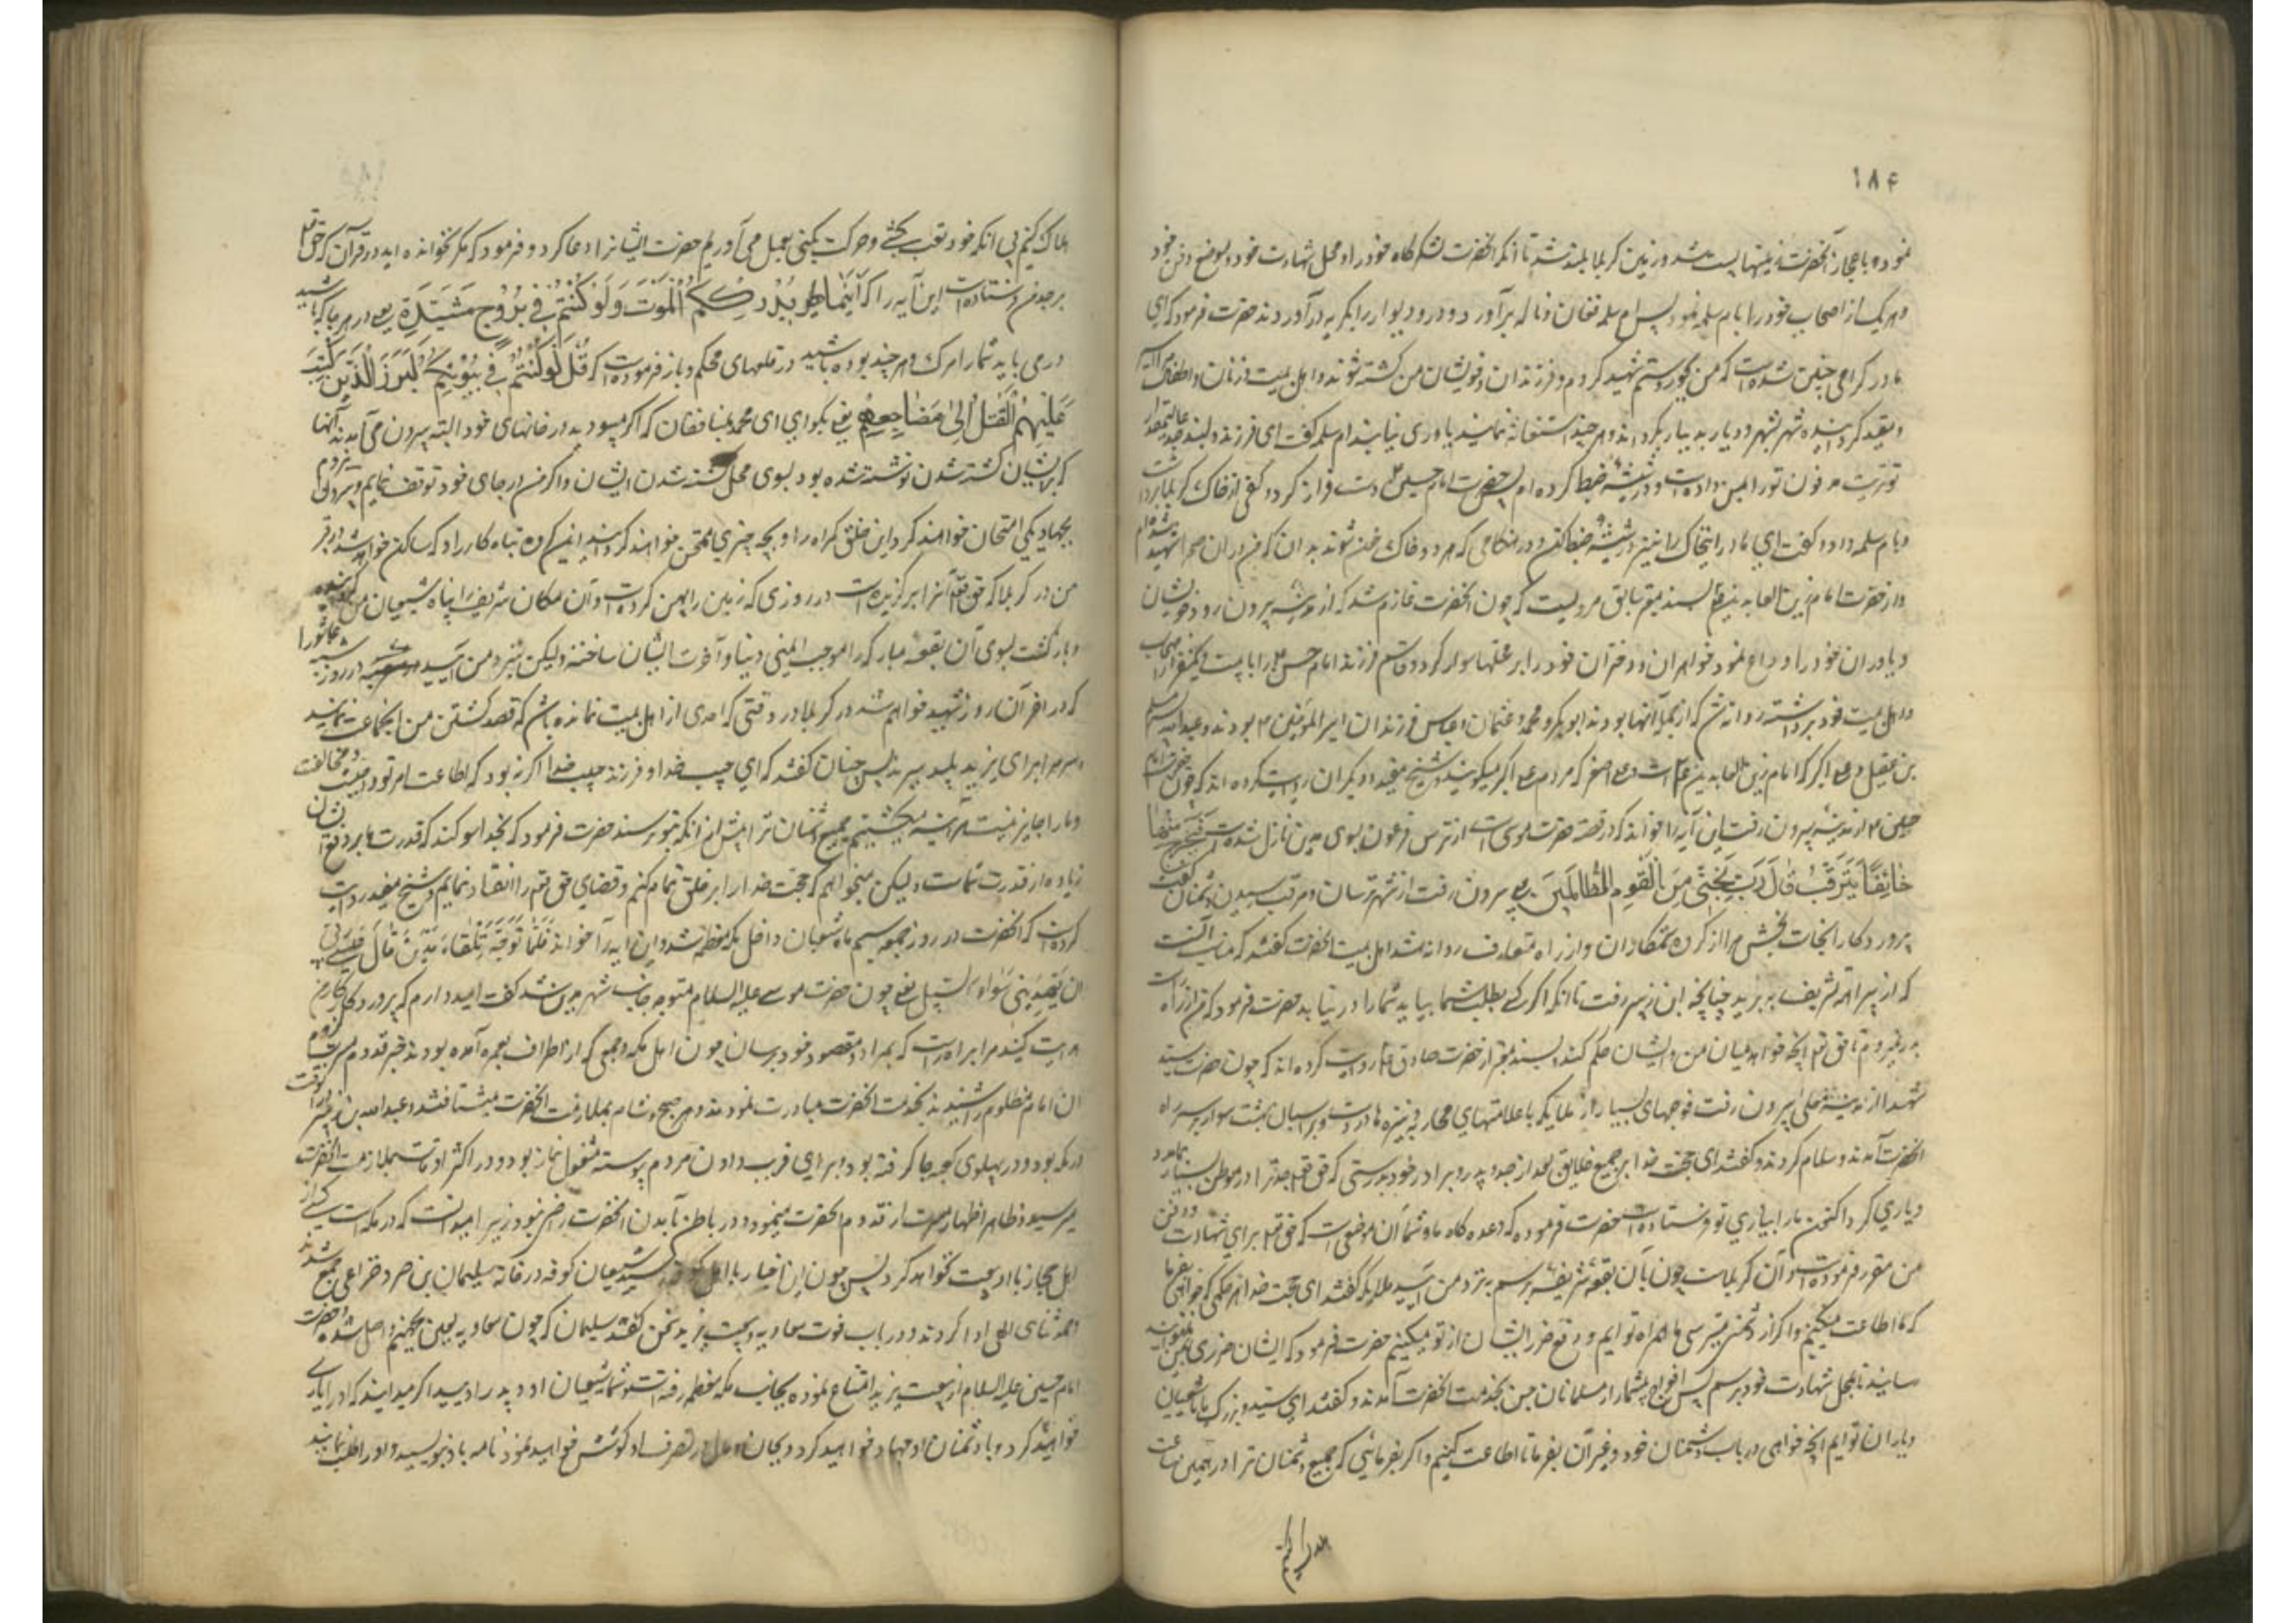 ۱۸۴
نموده باعجاز آنحضرت زمینها پست شد و زمین کربلا بلند شد تا آنکه آنحضرت لشکرگاه خود را و محل شهادت خود و موضع دفن خود
و هر یک از اصحاب خود را بام سلمه نمود پس ام سلمه فغان و ناله برآورد و در و دیوار را بگریه درآوردند حضرت فرمود که ای
مادر گرامی چنین شده است که من بجور و ستم شهید کردم و فرزندان و خویشان من کشته شوند و اهل بیت و زنان و اطفال
و بقید کردانیده شهر بشهر و دیار بدیار بگردانند و هر چند استغاثه نمایند یاوری نیابند ام سلمه گفت ای فرزند دلبند عالیمقدار
تو تربت مدفون تو را بمن داده است و در شیشه ضبط کرده ام پس حضرت امام حسین ع دست فراز کرد و کفی از خاک کربلا برداشت
و بام سلمه داد و گفت ای مادر این خاک را نیز در شیشه ضبط کن و در هنگامی که هر دو خاک خون شوند بدان که من در آن صحرا شهید شده ام
و از حضرت امام زین العابدین ع بسند معتبر سابق مرویست که چون آنحضرت عازم شد که از مدینه بیرون رود خویشان
و یاوران خود را وداع نمود خواهران و دختران خود را بر محملها سوار کرد و قاسم فرزند امام حسن ع را با بیست و یکنفر از اصحاب
و اهل بیت خود برداشته روانه شد که از جمله آنها بودند ابوبکر و محمد و عثمان و عباس فرزندان امیر المؤمنین ع بودند و عبدالله پسر مسلم
بن عقیل و علی اکبر که امام زین العابدین ع است و علی اصغر که مردم علی اکبر میگویند و شیخ مفید و دیگران روایت کرده اند که چون حضرت امام
حسین ع از مدینه بیرون رفت این آیه را خواند که در قصه حضرت موسی است از ترس فرعون بسوی مدین نازل شده است فَخَرَجَ مِنْهَا
خَائِفًا یَتَرَقَّبُ قَالَ رَبِّ نَجِّنِی مِنَ الْقَوْمِ الظَّالِمِینَ یعنی بیرون رفت از شهر ترسان و مترقب رسیدن دشمنان گفت
پروردگارا نجات بخش مرا از گروه ستمکاران و از راه متعارف روانه شد اهل بیت آنحضرت گفتند که مناسب آنست
که از بیراهه تشریف ببرید چنانچه ابن زبیر رفت تا آنکه اگر کسی بطلب شما بیاید شما را درنیابد حضرت فرمود که من از راه راست
بدر نمیروم تا حق تعالی آنچه خواهد میان من و ایشان حکم کند بسند معتبر از حضرت صادق ع روایت کرده اند که چون حضرت سید
شهدا از مدینه معلی بیرون رفت فوجهای بسیار از ملایکه با علامتهای محاربه و نیزه ها در دست و بر اسبان بهشت سوار بر سر راه
آنحضرت آمدند و سلام کردند و گفتند ای حجت خدا بر جمیع خلایق بعد از جد و پدر و برادر خود بدرستی که حق تعالی جد ترا در موطن بسیار بما مدد
و یاری کرد اکنون ما را بیاری تو فرستاده است حضرت فرمود که وعده گاه ما و شما آن موضعی است که حق تعالی برای شهادت و دفن
من مقرر فرموده است و آن کربلاست چون بآن بقعه شریفه برسم بنزد من آیید ملایکه گفتند ای حجت خدا هر حکمی که خواهی بفرما
که ما اطاعت میکنیم و اگر از دشمنی میترسی ما همراه تو ایم و دفع ضرر ایشان از تو میکنیم حضرت فرمود که ایشان ضرری بمن نمیتوانند
رسانید تا بمحل شهادت خود برسم پس افواج بیشمار از مسلمانان جن بخدمت آنحضرت آمدند و گفتند ای سید و بزرگ ما ما شیعیان
و یاران تو ایم آنچه خواهی در باب دشمنان خود و غیر آن بفرما تا اطاعت کنیم و اگر بفرمائی که جمیع دشمنان ترا در همین ساعت
هلاک کنیم بی آنکه خود تعب بکشی و حرکت بکنی بعمل می آوریم حضرت ایشانرا دعا کرد و فرمود که مگر نخوانده اید در قرآن که حق تعالی
بر جدم فرستاده است این آیه را که أَیْنَمَا تَکُونُوا یُدْرِکْکُمُ الْمَوْتُ وَلَوْ کُنْتُمْ فِی بُرُوجٍ مُشَیَّدَةٍ یعنی در هر جا که باشید
در می یابد شما را مرگ و هر چند بوده باشید در قلعهای محکم و باز فرموده است که قُلْ لَوْ کُنْتُمْ فِی بُیُوتِکُمْ لَبَرَزَ الَّذِینَ کُتِبَ
عَلَیْهِمُ الْقَتْلُ إِلَى مَضَاجِعِهِمْ یعنی بگو ای محمد بمنافقان که اگر میبودید در خانهای خود البته بیرون می آمدند آنها
که برایشان کشته شدن نوشته شده بود بسوی محل کشته شدن ایشان و اگر من در جای خود توقف نمایم و بیرون نروم
بجهاد بکی امتحان خواهند کرد این خلق گمراه را و بچه چیز ممتحن خواهند کردانید این گروه تباه کار را و که ساکن خواهد شد در قبر
من در کربلا که حق تعالی آنرا برگزیده است در روزی که زمین را پهن کرده است و آن مکان شریف را پناه شیعیان من گردانیده
و بازگشت بسوی آن بقعه مبارکه را موجب ایمنی دنیا و آخرت ایشان ساخته ولیکن بنزد من آیید در روز شنبه عاشورا
که در آخر آن روز شهید خواهم شد در کربلا در وقتی که احدی از اهل بیت نمانده باشم که قصد کشتن من این جماعت نمایند
و سر مرا برای یزید پلید ببرند پس جنیان گفتند که ای حبیب خدا و فرزند حبیب خدا اگر نه بود که اطاعت امر تو واجبست و مخالفت
و ما را جایز نیست هرآینه میکشتیم جمیع دشمنان ترا پیش از آنکه بتو برسند حضرت فرمود که بخدا سوگند که قدرت ما بر دفع ایشان
زیاده از قدرت شماست ولیکن میخواهم که حجت خدا را بر خلق تمام کنم و قضای حق تعالی را انقیاد نمایم و شیخ مفید روایت
کرده است که آنحضرت در روز جمعه سیم ماه شعبان داخل مکه معظمه شد و این آیه را خواند فَلَمَّا تَوَجَّهَ تِلْقَاءَ مَدْیَنَ قَالَ عَسَى رَبِّی
أَنْ یَهْدِیَنِی سَوَاءَ السَّبِیلِ یعنی چون حضرت موسی علیه السلام متوجه جانب شهر مدین شد گفت امید دارم که پروردگار من
هدایت کند مرا براه راست که بمراد و مقصود خود برسان چون اهل مکه و جمعی که از اطراف بعمره آمده بودند خبر قدوم مسرت لزوم
آن امام مظلوم را شنیدند بخدمت آنحضرت مبادرت نمودند و هر صبح و شام بملازمت آنحضرت میشتافتند و عبدالله بن زبیر در آنوقت
در مکه بود و در پهلوی کعبه جا گرفته بود و برای فریب دادن مردم پیوسته مشغول نماز بود و در اکثر اوقات بملازمت آنحضرت
میرسید و ظاهرا اظهار مسرت از قدوم آنحضرت مینمود و در باطن بآمدن آنحضرت راضی نبود زیرا میدانست که در مکه است کسی از
اهل حجاز با او بیعت نخواهد کرد پس چون این اخبار باهل کوفه رسید شیعیان کوفه در خانه سلیمان بن صرد خزاعی جمع شدند
حمد و ثنای الهی ادا کردند و در باب فوت معاویه و بیعت یزید سخن گفتند سلیمان گفت که چون معاویه لعین بجهنم واصل شده و حضرت
امام حسین علیه السلام از بیعت یزید امتناع نموده بجانب مکه معظمه رفته است و شما شیعیان او و پدر او یید اگر میدانید که او را یاری
خواهید کرد و با دشمنان او جهاد خواهید کرد و بجان و مال در نصرت او کوشش خواهید نمود نامه باو بنویسید و او را طلب نمایید